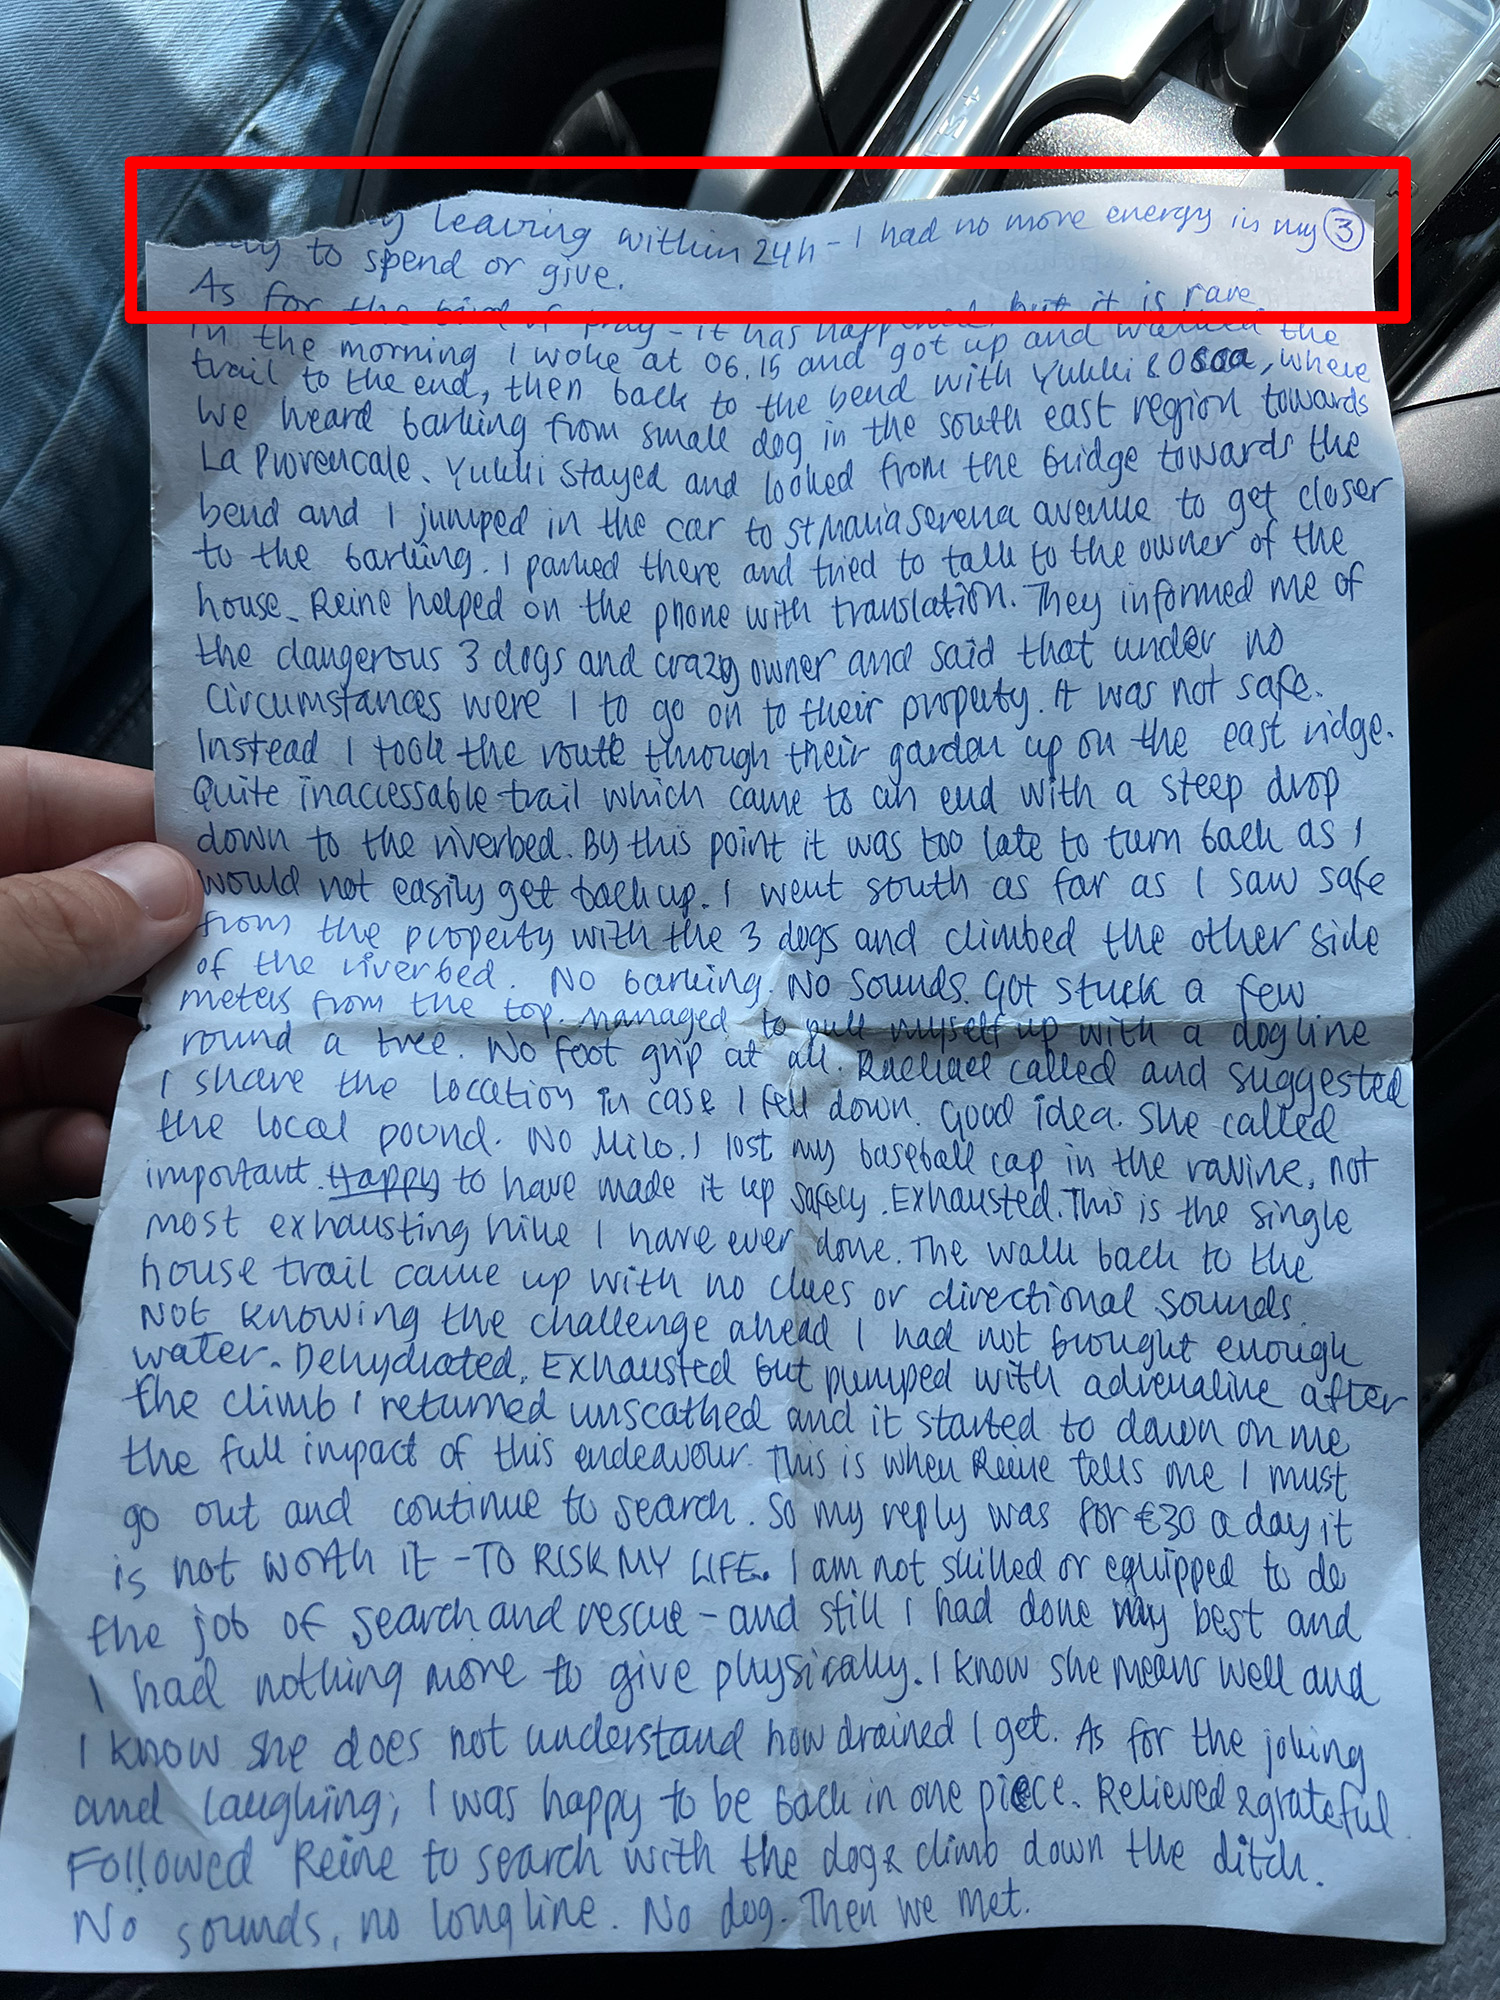 leaving within 24h - I had no more energy in my ③
to spend or give.
As for the bird of pray - it has happened, but it is rare
In the morning I woke at 06.15 and got up and walked the
trail to the end, then back to the bend with Yukki & , where
we heard barking from small dog in the south east region towards
La Provencale. Yukki stayed and looked from the bridge towards the
bend and I jumped in the car to St Maria Serena avenue to get closer
to the barking. I parked there and tried to talk to the owner of the
house. Reine helped on the phone with translation. They informed me of
the dangerous 3 dogs and crazy owner and said that under no
circumstances were I to go on to their property. It was not safe.
Instead I took the route through their garden up on the east ridge.
Quite inaccessable trail which came to an end with a steep drop
down to the riverbed. By this point it was too late to turn back as I
would not easily get back up. I went south as far as I saw safe
from the property with the 3 dogs and climbed the other side
of the riverbed. No barking. No sounds. Got stuck a few
meters from the top. managed to pull myself up with a dogline
round a tree. No foot grip at all. Rachael called and suggested
I share the location in case I fell down. Good idea. She called
the local pound. No Milo. I lost my baseball cap in the ravine, not
important. Happy to have made it up safely. Exhausted. This is the single
most exhausting hike I have ever done. The walk back to the
house trail came up with no clues or directional sounds.
Not knowing the challenge ahead I had not brought enough
water. Dehydrated, Exhausted but pumped with adrenaline after
the climb I returned unscathed and it started to dawn on me
the full impact of this endeavour. This is when Reine tells me I must
go out and continue to search. So my reply was for €30 a day it
is not worth it - TO RISK MY LIFE. I am not skilled or equipped to do
the job of search and rescue - and still I had done my best and
I had nothing more to give physically. I know she means well and
I know she does not understand how drained I get. As for the joking
and laughing; I was happy to be back in one piece. Relieved & grateful.
Followed Reine to search with the dog & climb down the ditch.
No sounds, no longline. No dog. Then we met.